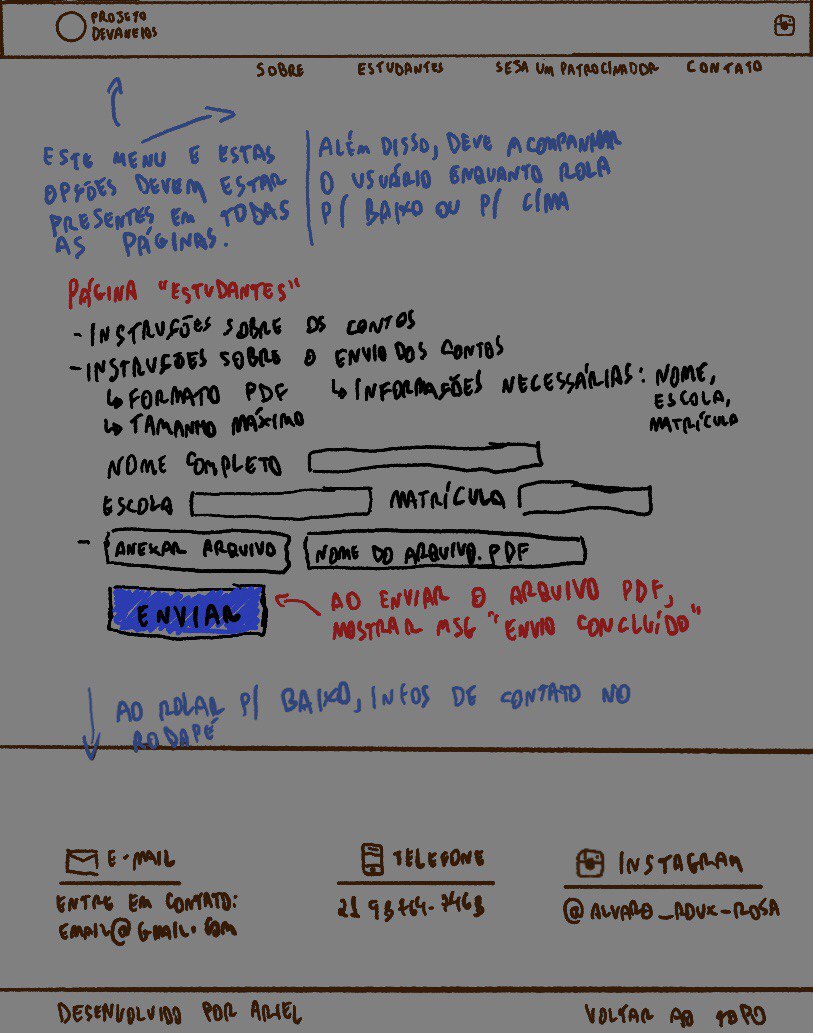 PROJETO
DEVANEIOS
SOBRE ESTUDANTES SEJA UM PATROCINADOR CONTATO
ESTE MENU E ESTAS
OPÇÕES DEVEM ESTAR
PRESENTES EM TODAS
AS PÁGINAS.
ALÉM DISSO, DEVE ACOMPANHAR
O USUÁRIO ENQUANTO ROLA
P/ BAIXO OU P/ CIMA
PÁGINA "ESTUDANTES"
- INSTRUÇÕES SOBRE OS CONTOS
- INSTRUÇÕES SOBRE O ENVIO DOS CONTOS
↳ FORMATO PDF ↳ INFORMAÇÕES NECESSÁRIAS: NOME,
ESCOLA,
MATRÍCULA
↳ TAMANHO MÁXIMO
NOME COMPLETO
ESCOLA MATRÍCULA
- ANEXAR ARQUIVO NOME DO ARQUIVO.PDF
ENVIAR
AO ENVIAR O ARQUIVO PDF,
MOSTRAR MSG "ENVIO CONCLUÍDO"
AO ROLAR P/ BAIXO, INFOS DE CONTATO NO
RODAPÉ
E-MAIL
ENTRE EM CONTATO:
EMAIL@GMAIL.COM
TELEFONE
21
INSTAGRAM
DESENVOLVIDO POR ARIEL
VOLTAR AO TOPO